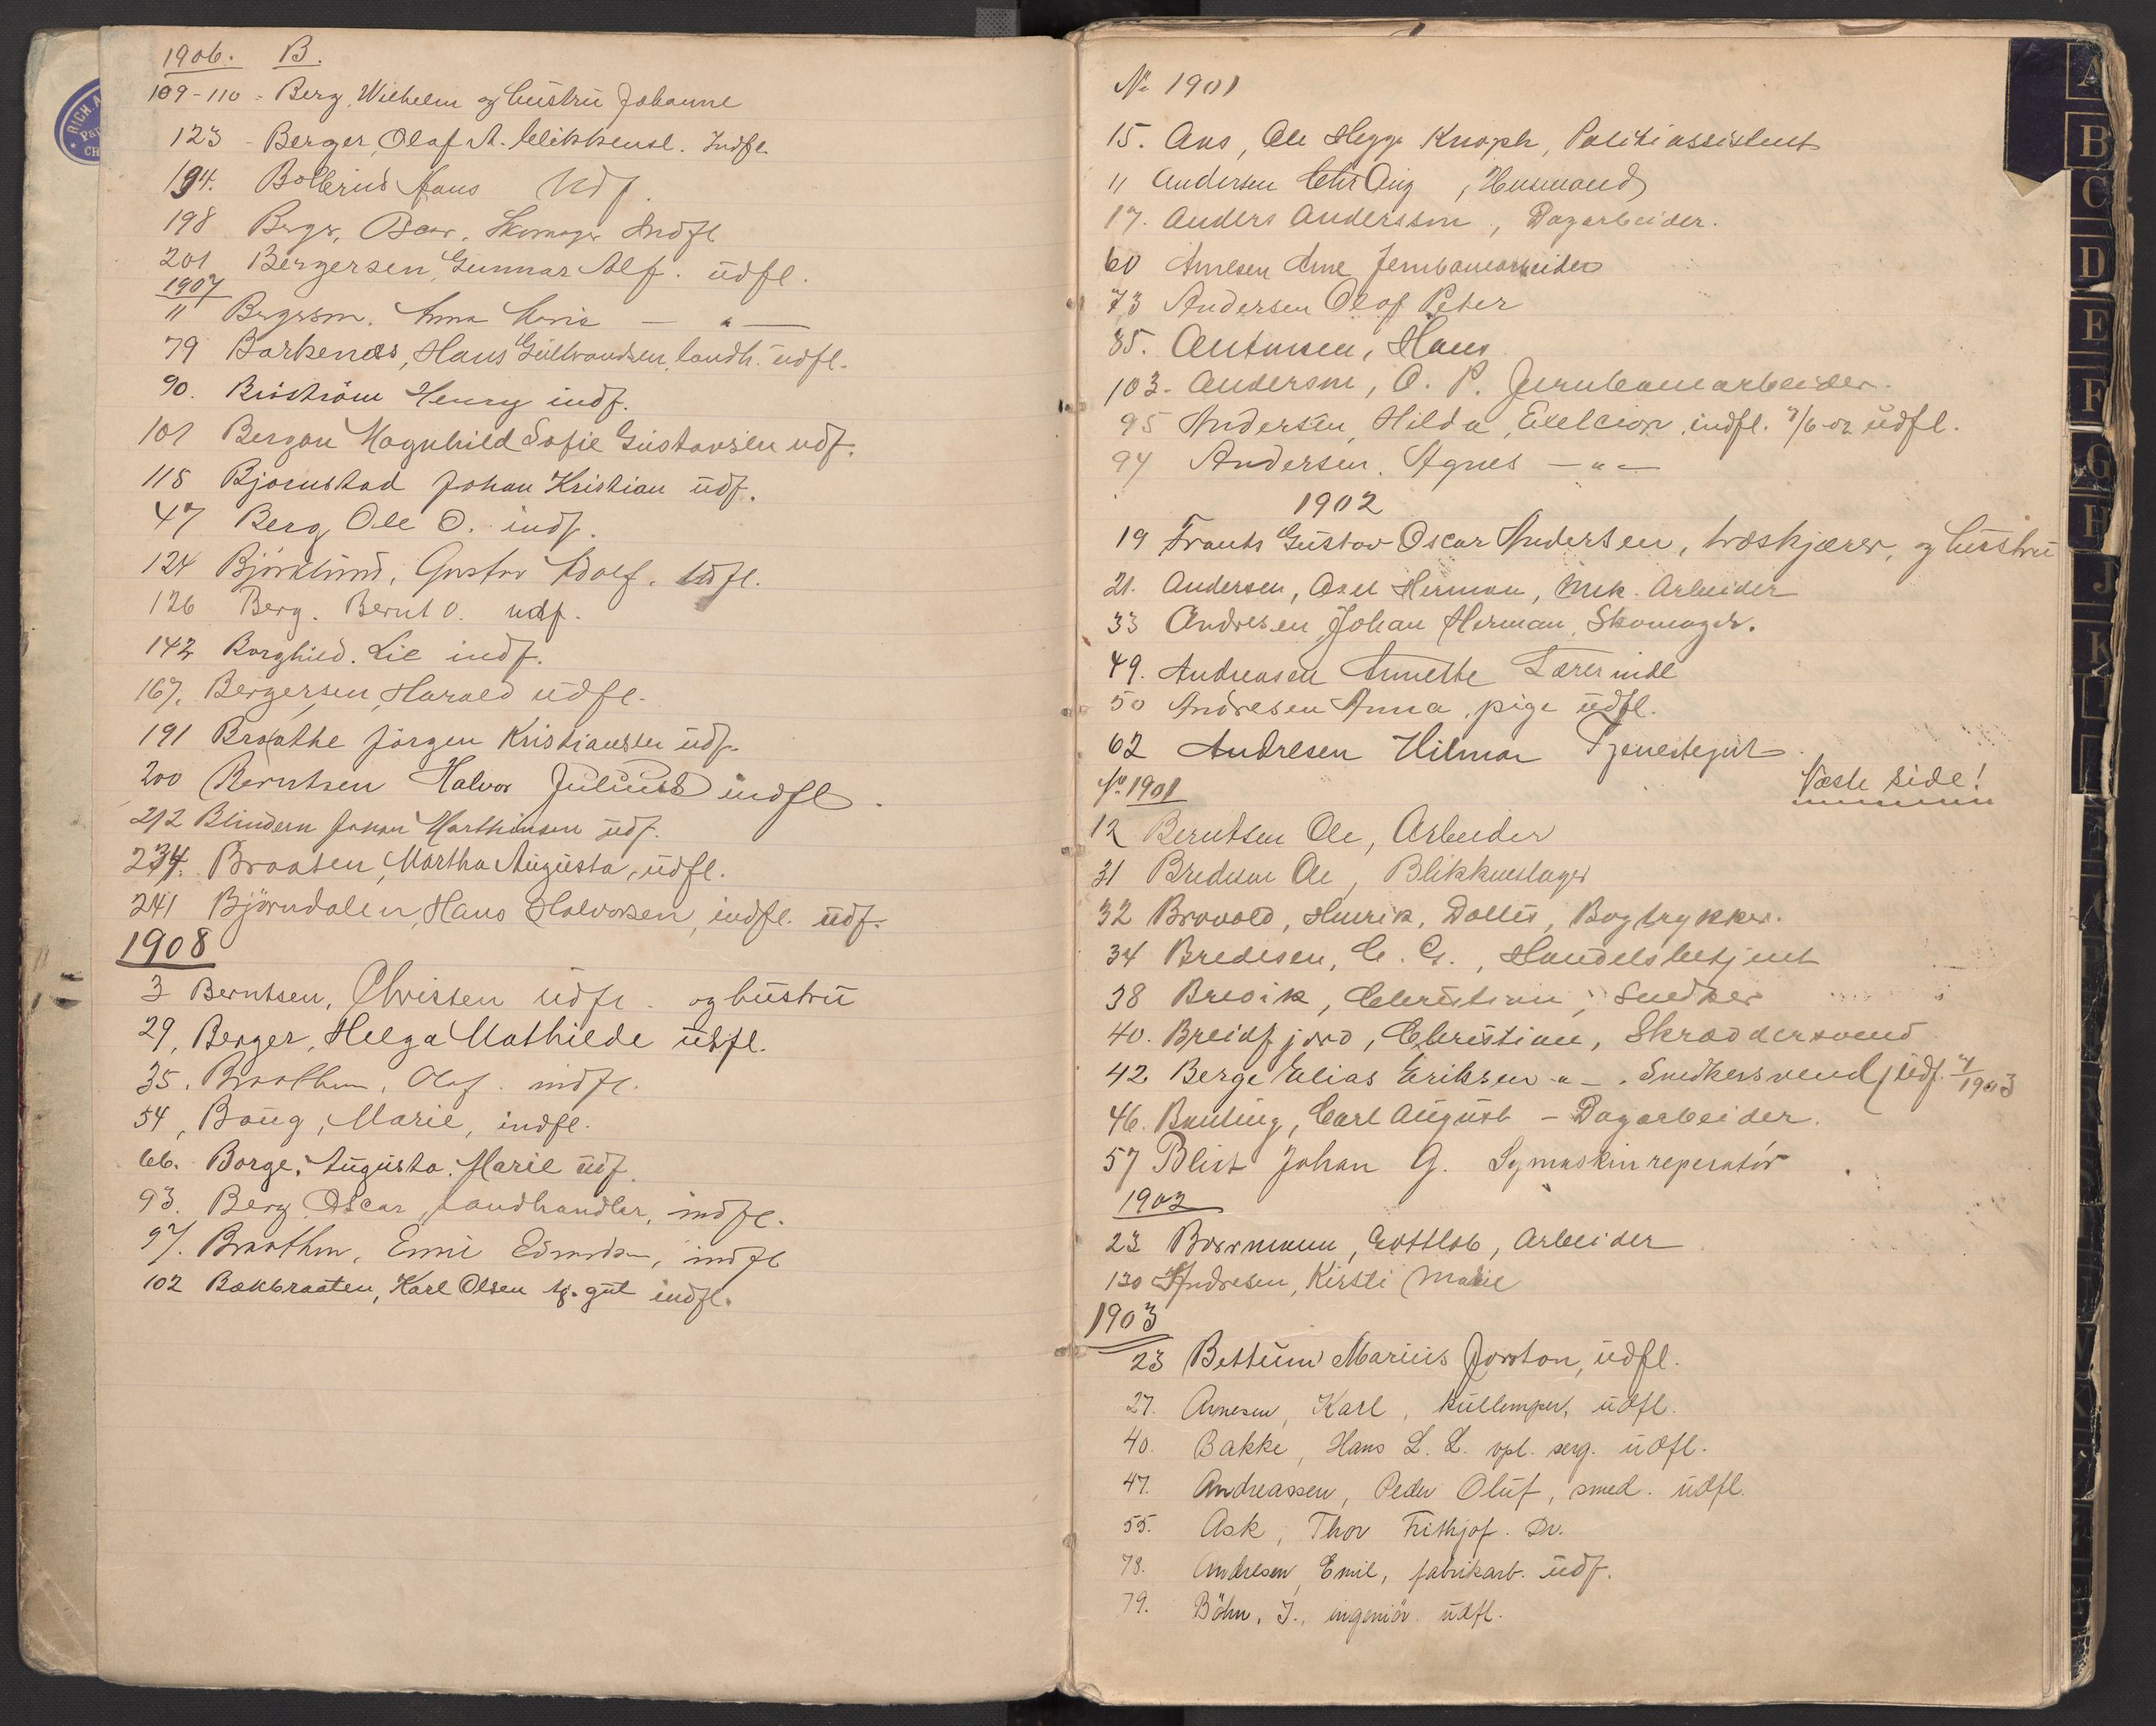 1906. B.
109-110 - Berg, Wilhelm og hustru Johanne
123 - Berger, Olaf A. Mikkelsl. Indfl.
194. Bolbrud Hans Udf.
198 Berger, Oscar, Skomager Indfl
201 Bergersen, Gunnar Alf. udfl.
1907
11 Bergersen, Anna Marie — " —
79 Barkenæs, Hans Gulbrandsen, landh. udfl.
90. Briström Henry indf.
101 Bergan Magnhild Sofie Gustavsen udf.
118 Bjørnstad Johan Kristian udf.
47 Berg, Ole O. indf.
124 Björklund, Gustav Adolf. Udfl.
126 Berg. Bernt O. udf.
142 Borghild. Lie indf.
167. Bergersen, Harald udfl.
191 Braathe Jörgen Kristiansen udf.
200 Berntsen Halvor Julius indfl.
212 Blindern Johan Marthinsen udf.
234. Braaten, Martha Augusta, udfl.
241 Björndalen, Hans Halvorsen, indfl. udf.
1908
3 Berntsen, Christen udfl. og hustru
29, Berger, Helga Mathilde udfl.
35. Braathen, Olaf. indfl.
54, Baug, Marie, indfl.
66. Borge, Augusta. Marie udf.
93. Berg Oscar, Landhandler, indfl.
97. Braathen, Emil Edvardsen, indfl
102 Bakbraaten, Karl Olsen tj. gut indfl.
RICH. A
CH
No 1901
15. Aas, Ole Hegge Knoph, Politiassistent
11 Andersen Chr Aug, Husmand
17. Anders Anderssen, Dagarbeider.
60 Arnesen Arne Jernbanearbeider
73 Andersen Olof Peter
85. Antonsen, Hans
103. Andersen, O. P. Jernbanearbeider.
95 Andersen, Hilda, indfl. 9/6-02 udfl.
94 Andersen. Agnes — " —
1902
19 Frants Gustav Oscar Andersen, træskjærer, og hustru
21. Andersen, Axel Herman, Mek. Arbeider
33 Andresen, Johan Herman, Skomager.
49. Andreasen Annette Lærerinde
50 Andresen Anna, pige udfl.
62 Andresen Hilmar Tjenestegut
Næste side!
No. 1901
12 Berntsen Ole, Arbeider
31 Bredesen Ole, Blikkenslager
32 Brovold, Henrik, Bogtrykker.
34 Bredesen, C. G., Handelsbetjent
38 Brevik, Christian, Snedker
40. Breidfjord, Christian, Skræddersvend
42 Berge Elias Eriksen - " - . Snedkersvend, udf. 4/1903
46. Bunting, Carl August - Dagarbeider.
57 Blix Johan G. Symaskinreperatör
1902
23 Borrmann, Gottlob, Arbeider
130 Andresen, Kirsti Marie
1903
23 Bettum Marius Jonston, udfl.
27. Arnesen, Karl, kullemper, udfl.
40. Bakke, Hans L. L. vpl. serg. udfl.
47. Andreassen, Peder Oluf, smed. udfl.
55. Ask, Thor Frithjof. Dr.
78. Andresen, Emil, fabrikarb. udf.
79. Böhn, J., ingeniör. udfl.
A
B
C
D
E
F
G
H
J
K